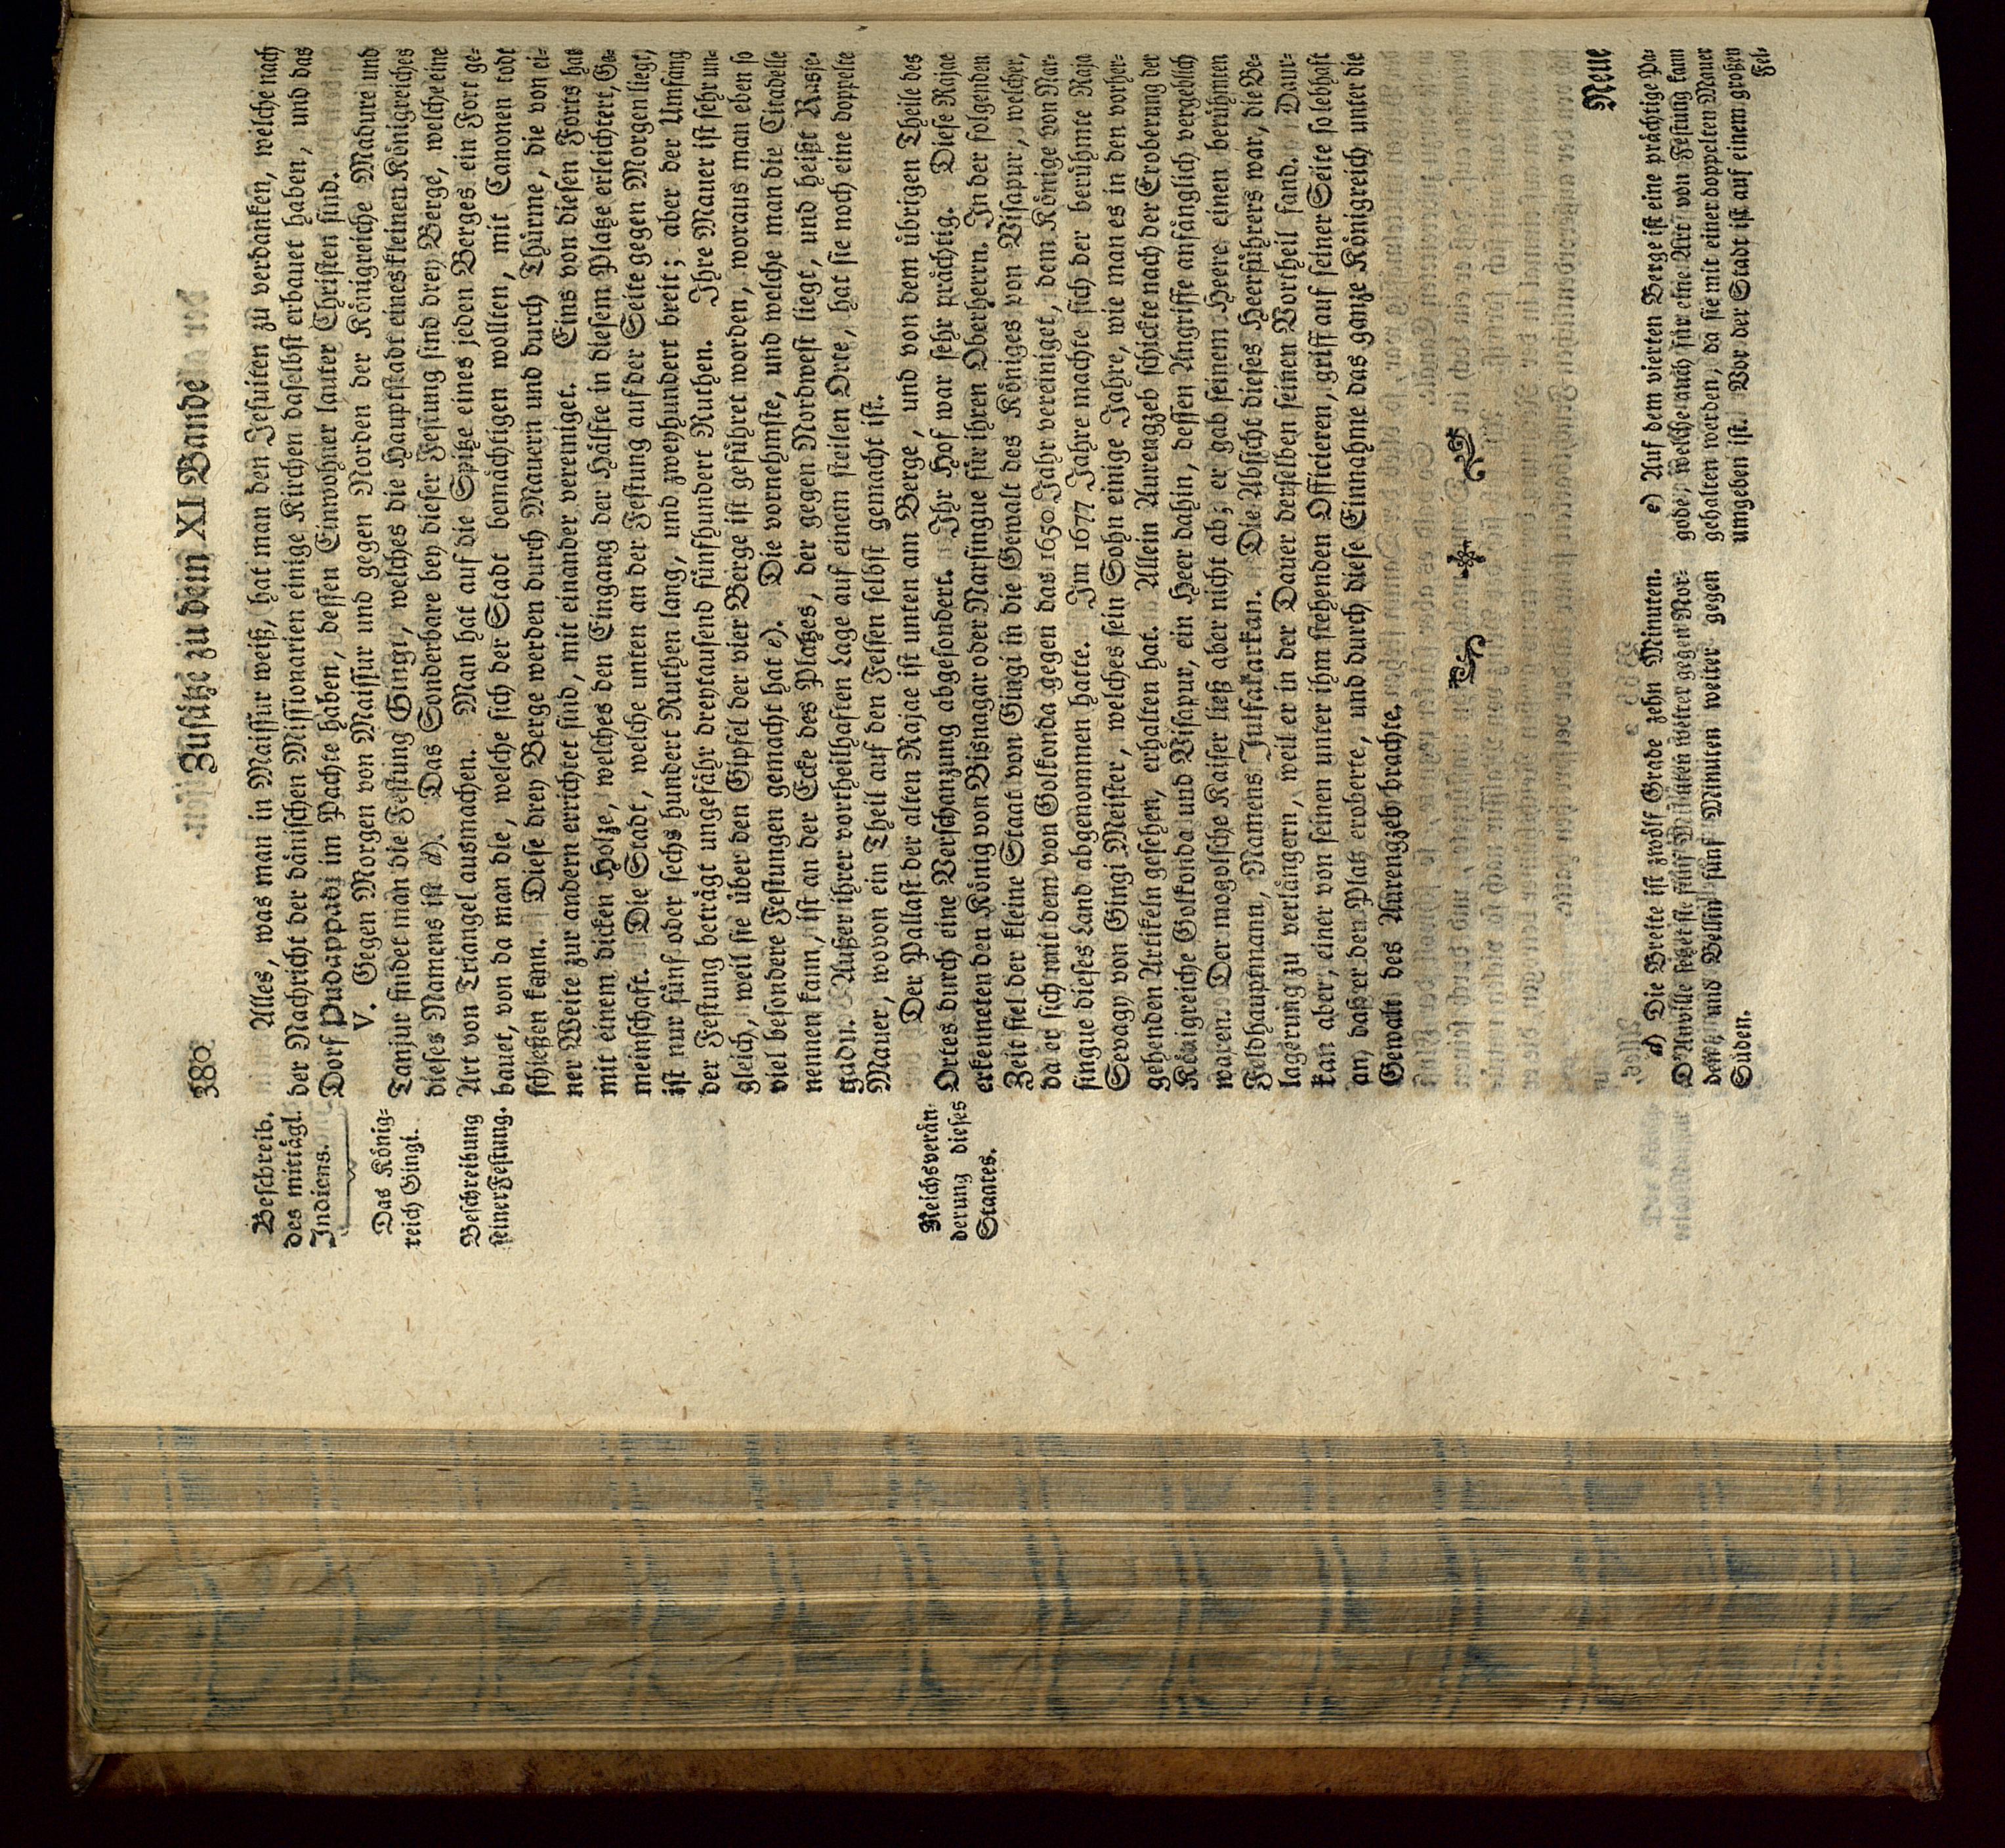 380 Zusätze zu dem XI Bande
Beschreib.
des mittägl.
Indiens.
Alles, was man in Maissur weiß, hat man den Jesuiten zu verdanken, welche nach
der Nachricht der dänischen Missionarien einige Kirchen daselbst erbauet haben, und das
Dorf Pudappadi im Pachte haben, dessen Einwohner lauter Christen sind.
Das König-
reich Gingi.
V. Gegen Morgen von Maissur und gegen Norden der Königreiche Madure und
Tanjur findet man die Festung Gingi, welches die Hauptstadt eines kleinen Königreiches
dieses Namens ist d). Das Sonderbare bey dieser Festung sind drey Berge, welche eine
Beschreibung
seiner Festung.
Art von Triangel ausmachen. Man hat auf die Spitze eines jeden Berges ein Fort ge-
bauet, von da man die, welche sich der Stadt bemächtigen wollten, mit Canonen todt
schießen kann. Diese drey Berge werden durch Mauern und durch Thürme, die von ei-
ner Weite zur andern errichtet sind, mit einander vereiniget. Eins von diesen Forts hat
mit einem dicken Holze, welches den Eingang der Hälfte in diesem Platze erleichtert, Ge-
meinschaft. Die Stadt, welche unten an der Festung auf der Seite gegen Morgen liegt,
ist nur fünf oder sechs hundert Ruthen lang, und zweyhundert breit; aber der Umfang
der Festung beträgt ungefähr dreytausend fünfhundert Ruthen. Ihre Mauer ist sehr un-
gleich, weil sie über den Gipfel der vier Berge ist geführet worden, woraus man eben so
viel besondere Festungen gemacht hat e). Die vornehmste, und welche man die Citadelle
nennen kann, ist an der Ecke des Platzes, der gegen Nordwest liegt, und heißt Rasje-
gadu. Außer ihrer vortheilhaften Lage auf einem steilen Orte, hat sie noch eine doppelte
Mauer, wovon ein Theil auf den Felsen selbst gemacht ist.
Reichsverän-
derung dieses
Staates.
Der Pallast der alten Rajae ist unten am Berge, und von dem übrigen Theile des
Ortes durch eine Verschanzung abgesondert. Ihr Hof war sehr prächtig. Diese Rajae
erkenneten den König von Bisnagar oder Narsingue für ihren Oberherrn. In der folgenden
Zeit fiel der kleine Staat von Gingi in die Gewalt des Königes von Visapur, welcher,
da er sich mit dem von Golkonda gegen das 1650 Jahr vereiniget, dem Könige von Nar-
singue dieses Land abgenommen hatte. Im 1677 Jahre machte sich der berühmte Raja
Sevagy von Gingi Meister, welches sein Sohn einige Jahre, wie man es in den vorher-
gehenden Artikeln gesehen, erhalten hat. Allein Aurengzeb schickte nach der Eroberung der
Königreiche Golkonda und Visapur, ein Heer dahin, dessen Angriffe anfänglich vergeblich
waren. Der mogolsche Kaiser ließ aber nicht ab; er gab seinem Heere einen berühmten
Feldhauptmann, Namens Julfakarkan. Die Absicht dieses Heerführers war, die Be-
lagerung zu verlängern, weil er in der Dauer derselben seinen Vortheil fand. Daut-
kan aber, einer von seinen unter ihm stehenden Officieren, griff auf seiner Seite so lebhaft
an, daß er den Platz eroberte, und durch diese Einnahme das ganze Königreich unter die
Gewalt des Aurengzeb brachte.
Neue
d) Die Breite ist zwölf Grade zehn Minuten.
D'Anville setzet sie fünf Minuten weiter gegen Nor-
den, und Bellin fünf Minuten weiter gegen
Süden.
e) Auf dem vierten Berge ist eine prächtige Pa-
gode, welche auch für eine Art von Festung kann
gehalten werden, da sie mit einer doppelten Mauer
umgeben ist. Vor der Stadt ist auf einem großen
Fel-